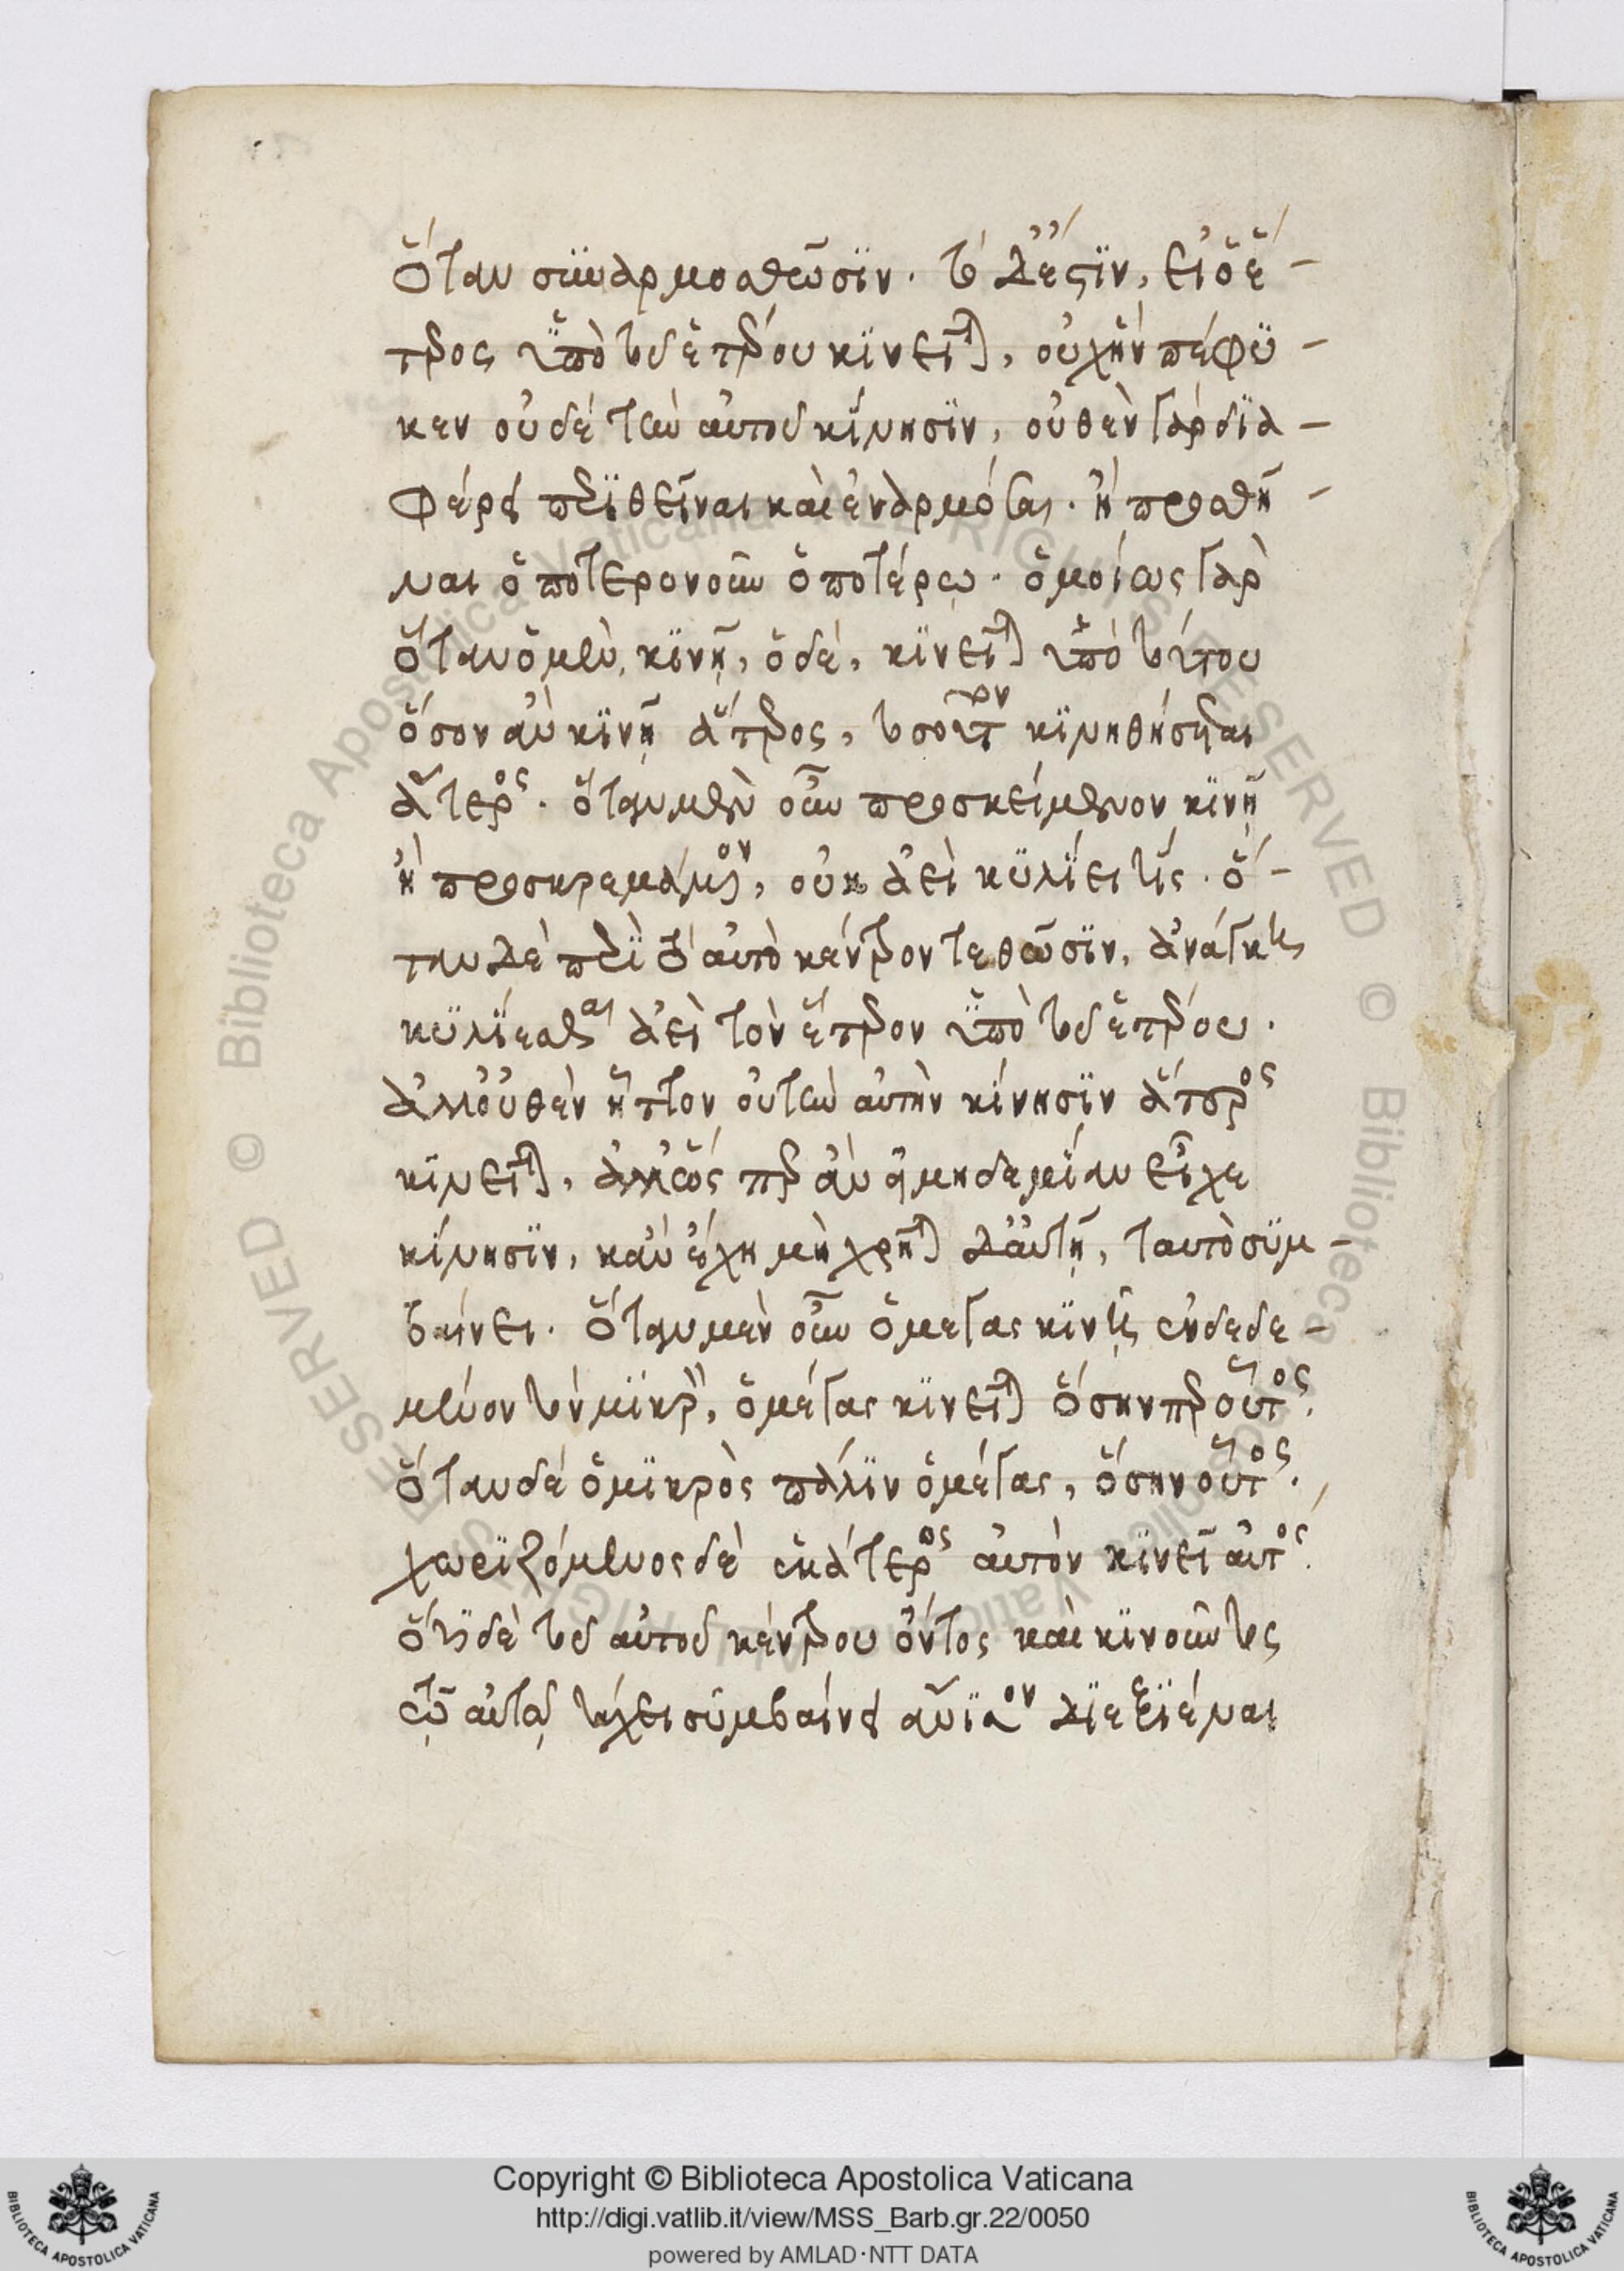 ὅταν συναρμοσθῶσιν. τὸ δ' ἔστιν, εἰ ὁ ἕ-
τερος ὑπὸ τοῦ ἑτέρου κινεῖται, οὐχ ἣν πέφυ-
κεν οὐδὲ τὴν αὐτοῦ κίνησιν, οὐθὲν γὰρ δια-
φέρει περιθεῖναι καὶ ἐναρμόσαι. ἢ προσθῆ-
ναι ὁποτερονοῦν ὁποτέρῳ. ὁμοίως γὰρ
ὅταν ὁ μὲν, κινῇ, ὁ δὲ, κινεῖται ὑπὸ τούτου
ὅσον ἂν κινῇ ἅτερος, τοσοῦτον κινηθήσεται
ἅτερος. ὅταν μὲν οὖν προσκείμενον κινῇ
ἢ προσκρεμάμενον, οὐκ ἀεὶ κυλίει τίς. ὅ-
ταν δὲ περὶ τὸ αὐτὸ κέντρον τεθῶσιν, ἀνάγκη
κυλίεσθαι ἀεὶ τὸν ἕτερον ὑπὸ τοῦ ἑτέρου.
ἀλλ' οὐθὲν ἧττον οὐ τὴν αὐτὴν κίνησιν ἅτερος
κινεῖται, ἀλλ' ὥσπερ ἂν εἰ μηδεμίαν εἶχε
κίνησιν, κἂν ἔχῃ μὴ χρῆται δ' αὐτῇ, ταυτὸ συμ-
βαίνει. ὅταν μὲν οὖν ὁ μέγας κινῇ ἐνδεδε-
μένον τὸν μικρὸν, ὁ μέγας κινεῖται ὅσην περ οὗτος.
ὅταν δὲ ὁ μικρὸς πάλιν ὁ μέγας, ὅσην οὗτος.
χωριζόμενος δὲ ἑκάτερος αὐτὸν κινεῖ αὐτός.
ὅτι δὲ τοῦ αὐτοῦ κέντρου ὄντος καὶ κινοῦντος
τῷ αὐτῷ τάχει συμβαίνει ἄνισον διεξιέναι
Copyright © Biblioteca Apostolica Vaticana
http://digi.vatlib.it/view/MSS_Barb.gr.22/0050
powered by AMLAD·NTT DATA